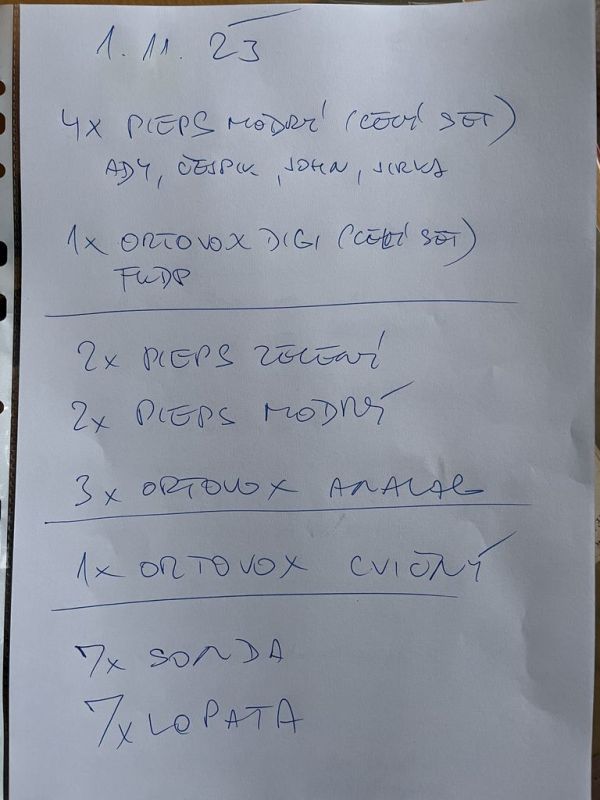 1. 11. 23
4x PIEPS MODRÝ (CELÝ SET)
ADY, ČEJPIK, JOHN, JIRKA
1x ORTOVOX DIGI (CELÝ SET)
2x PIEPS ZELENÝ
2x PIEPS MODRÝ
3x ORTOVOX ANALAG
1x ORTOVOX CVIČNÝ
7x SONDA
7x LOPATA